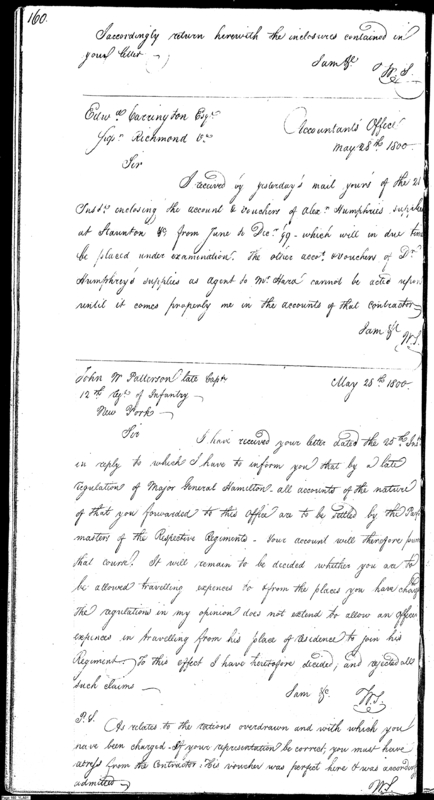 160.
I accordingly return herewith the inclosures contained in
your letter
I am &c.
W. S.
Edwd. Carrington Esqr.
Richmond Va.
Accountants Office
May 28th. 1800.
Sir
I received by yesterday's mail yours of the 21
Inst. enclosing the account & vouchers of Alexr. Humphries supplies
at Staunton &c from June to Decr. 99 - which will in due time
be placed under examination. The other accot. & vouchers of Dr.
Humphrey's supplies as agent to Mr. Hara cannot be acted upon
until it comes properly me in the accounts of that contractor
I am &c
W. S.
John W Patterson late Capt.
12th. Regt. of Infantry
New York
May 28th. 1800.
Sir
I have received your letter dated the 25th. Inst.
in reply to which I have to inform you that by a late
regulation of Major General Hamilton all accounts of the nature
of that you forwarded to this Office are to be settled by the Pay
masters of the Respective Regiments - Your account will therefore
that course. It will remain to be decided whether you are to
be allowed travelling expences to & from the places you have
The regulations in my opinion does not extend to allow an officer
expences in travelling from his place of residence to join his
Regiment. To this effect I have heretofore decided, and rejected all
such claims
I am &c
W. S.
P.S. As relates to the rations overdrawn and with which you
have been charged - If your representation be correct, you must have
from the Contractor. His voucher was perfect here & was
admitted
W. S.